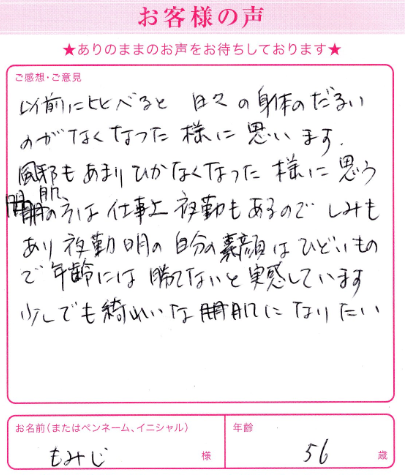 お客様の声
★ありのままのお声をお待ちしております★
ご感想・ご意見
以前にヒヒべると 日々の身体のだるい
のがなくなった様に思います.
風邪もあまりひかなくなった様に思う
肌の方は仕事上夜勤もあるので しみも
あり夜勤明の自分の素顔はひどいもの
で年齢には勝てないと実感しています
少しでも綺れいな肌になりたい
お名前(またはペンネーム、イニシャル)
もみじ 様
年齢
56 歳